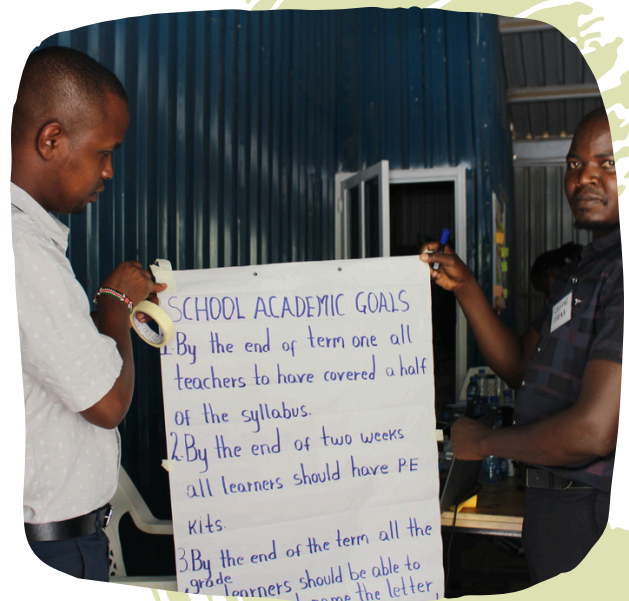 SCHOOL ACADEMIC GOALS
1. By the end of term one all
teachers to have covered a half
of the syllabus.
2. By the end of two weeks
all learners should have PE
kits.
3 By the end of the term all the
grade
learners should be able to
name the letter,